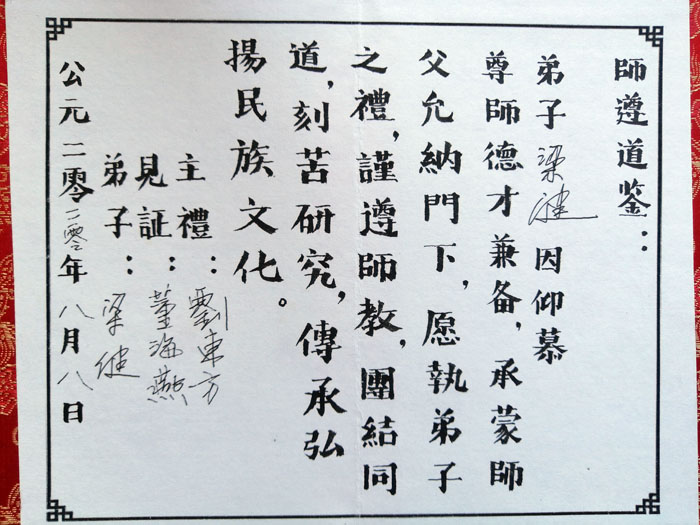 師遵道鉴：
弟子梁健 因仰慕
尊師德才兼备，承蒙師
父允納門下，愿執弟子
之禮，謹遵師教，團结同
道，刻苦研究，傳承弘
揚民族文化。
主禮：劉東方
見証：董海燕
弟子：梁健
公元二零二零年八月八日